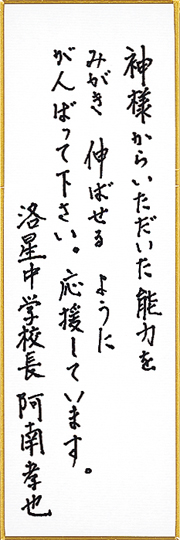 神様からいただいた能力を
みがき 伸ばせる ように
がんばって下さい。応援しています。
洛星中学校長 阿南孝也